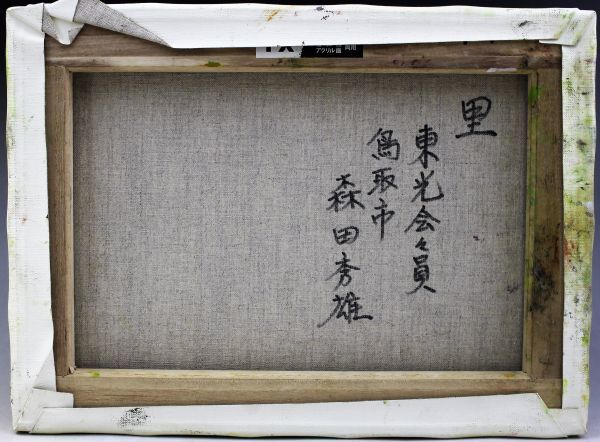 里
東光会々員
鳥取市
森田秀雄
アクリル画
両用